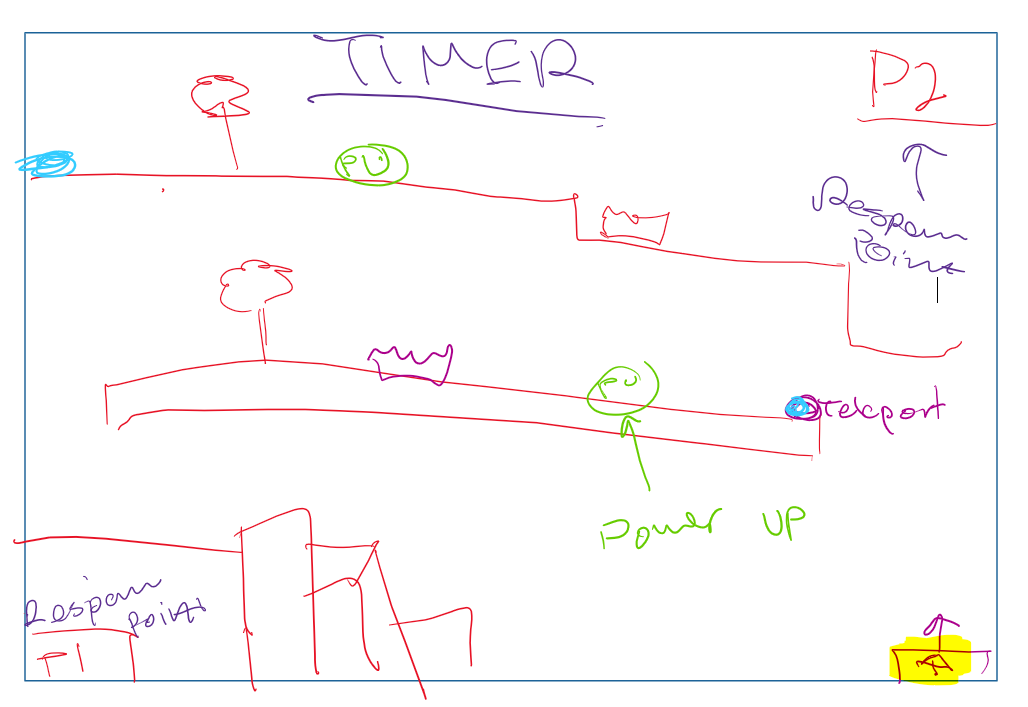 TIMER
P2
PU
Respawn
Point
PU
Teleport
Power UP
Respawn
Point
P1